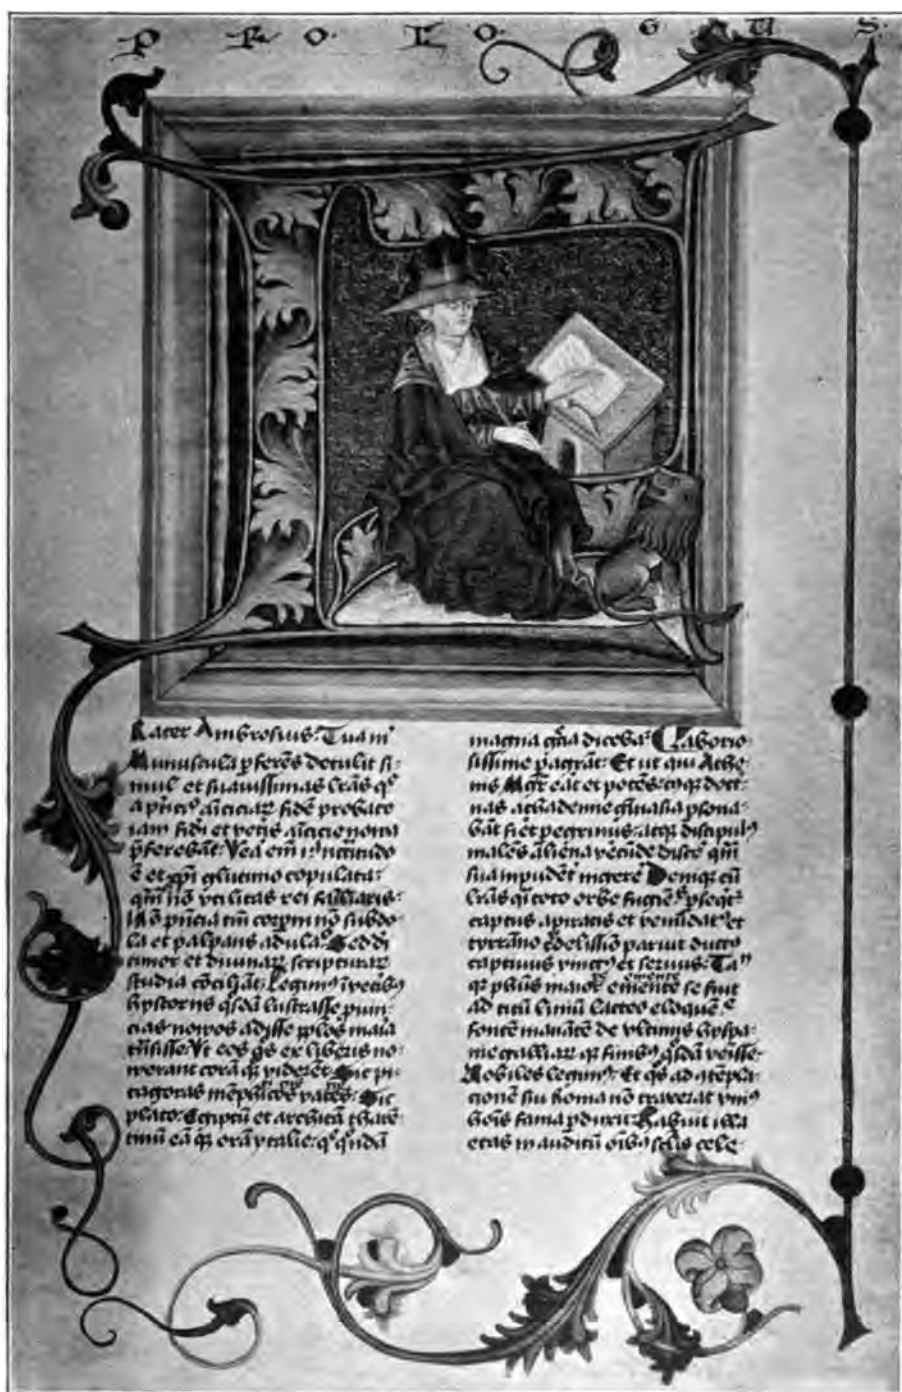 PROLOGUS.
Rater Ambrosius. Tua m̄
Munuscula ꝑferēs detulit si-
mul et suauissimas l̄ras q̄
a p̄ncip̄ amiciciaꝝ fidē probate
iam fidei et vetis amicicie noua
p̄ferebāt. Vea em̄ necessitudo
ē et xp̄i glutino copulata.
qm̄ nō vtilitas rei familiaris.
Nō p̄ncia tm̄ corpm̄ nō subdo-
la et palpans adulaº. Sed di
timor et diuinaꝝ scripturaꝝ
studia cōciliāt. Legimꝰ ī vetibꝰ
hystoriis qsdā lustrasse puin-
cias nouos adisse pplos maia
trāsisse. Vt eos qs ex libris no-
uerant corā qꝫ viderēt. Sic pi
tagoras mēphiticos vates. Sic
plato. Egiptū et architā tharē-
tinū eā qꝫ orā ytalie. q̄ q̄ndā
magna gr̄cia dicebaꝶ. Laborio-
sissime ꝑagrāt. Et ut qui Athe
nis mgr̄ eāt et potēs. cuiꝰqꝫ doct̄-
nas achademie gīnasia ꝑsona-
bāt fiēt pegrinus. atqꝫ discipulꝰ
malēs aliena vēcūde discē qm̄
sua impudēt ingerē. Deniqꝫ cū
l̄ras qi toto orbe fugiētes ꝑseqꝶ
captus a piratis et venūdatꝰ et
tyrāno c̄delissīo pariut ductꝰ
captiuus vinctꝰ et seruus. Ta
qꝫ phūs maior emēnte se fuit
ad titū liuiū lacteo eloquē
fontē manātē de vltimis hyspa-
nie galliaꝝ qꝫ finibꝰ qsdā veisse
Nobiles legimꝰ. Et qs ad ꝯtēpla-
cionē sui Roma nō traxerat vniꝰ
hōis fama ꝑduxit. Habuit illa
etas inauditū oibꝰ sclis cele-